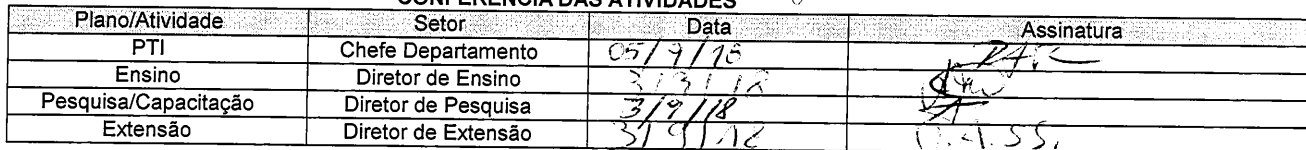 CONFERÊNCIA DAS ATIVIDADES
Plano/Atividade Setor Data Assinatura
PTI Chefe Departamento 05/9/18
Ensino Diretor de Ensino
Pesquisa/Capacitação Diretor de Pesquisa 3/9/18
Extensão Diretor de Extensão